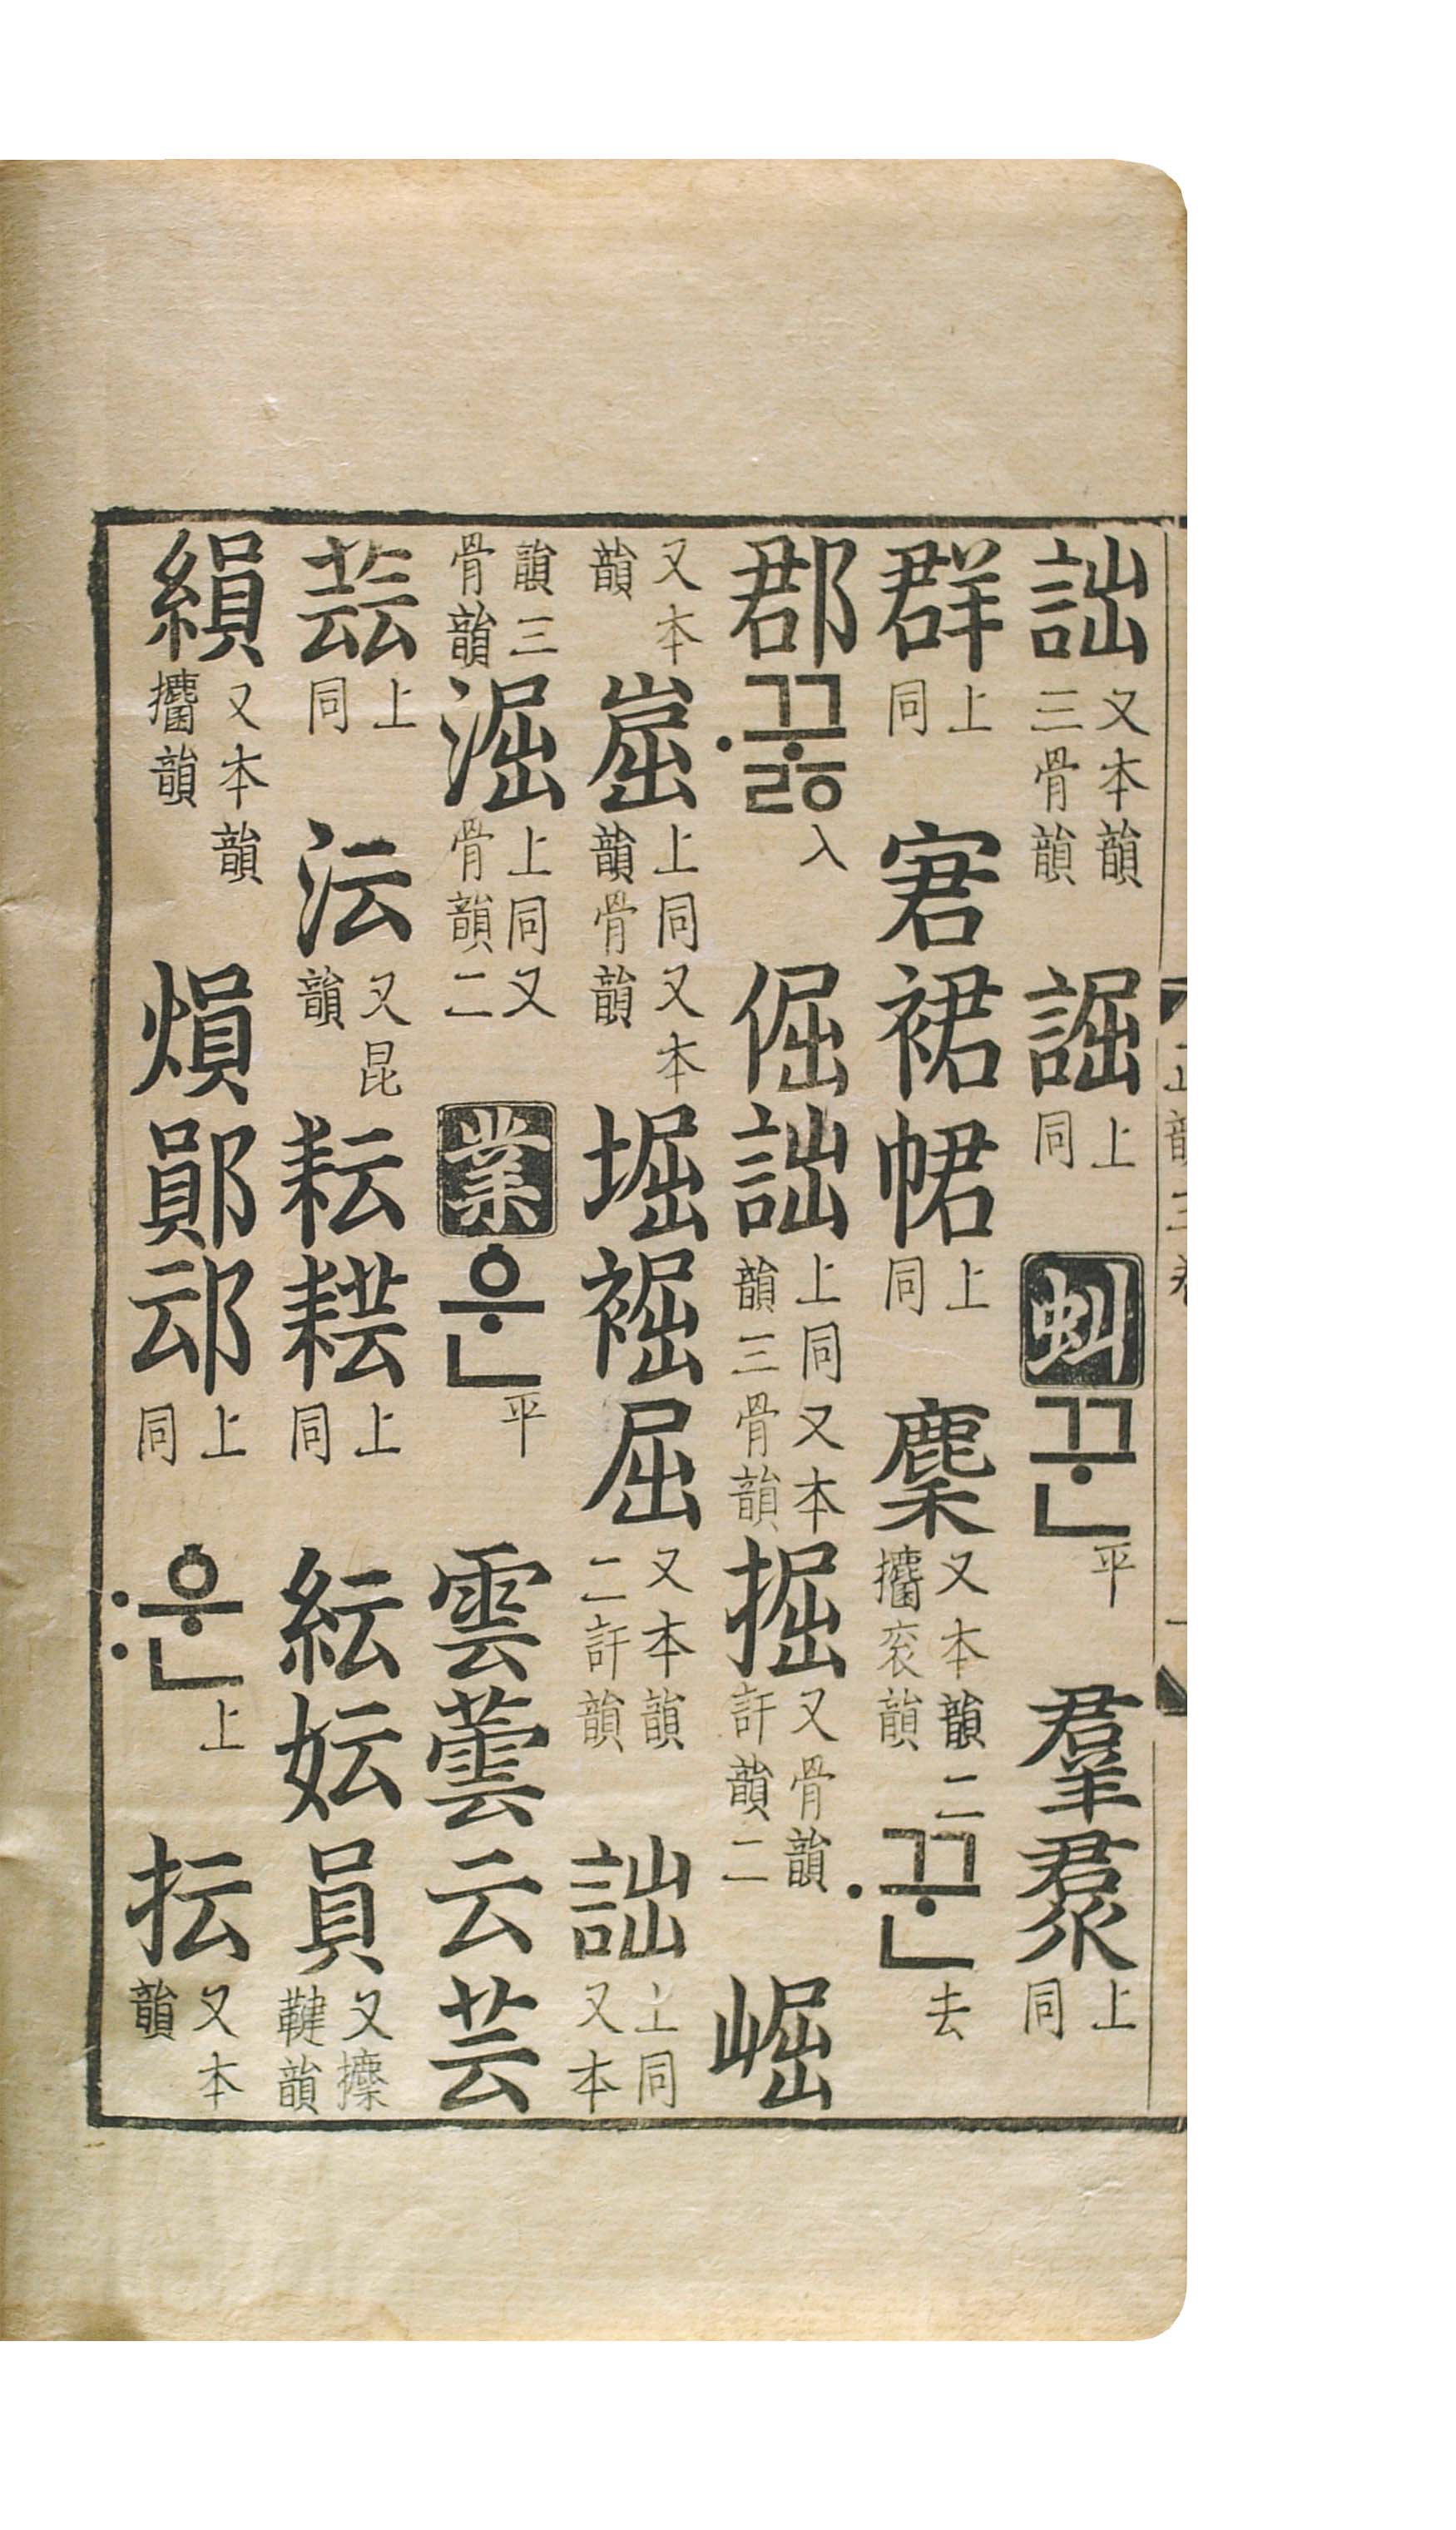 詘又本韻三骨韻 誳上同 虯 꾼平 羣上同
群上同 宭裙帬上同 麇又本韻二攟衮韻 ·꾼去
郡 ·꾸ᇙ入 倔詘上同又本韻三骨韻 掘又骨韻訐韻二 崛
又本韻 崫上同又本韻骨韻 堀 屈又本韻二訐韻 詘上同又本
韻三骨韻 淈上同又骨韻二 業 운平 雲蕓云芸
上同 沄又昆韻 耘上同 紜妘員又鞬韻
縜又本韻攟韻 熉鄖䢵上同 :운上 抎又本韻